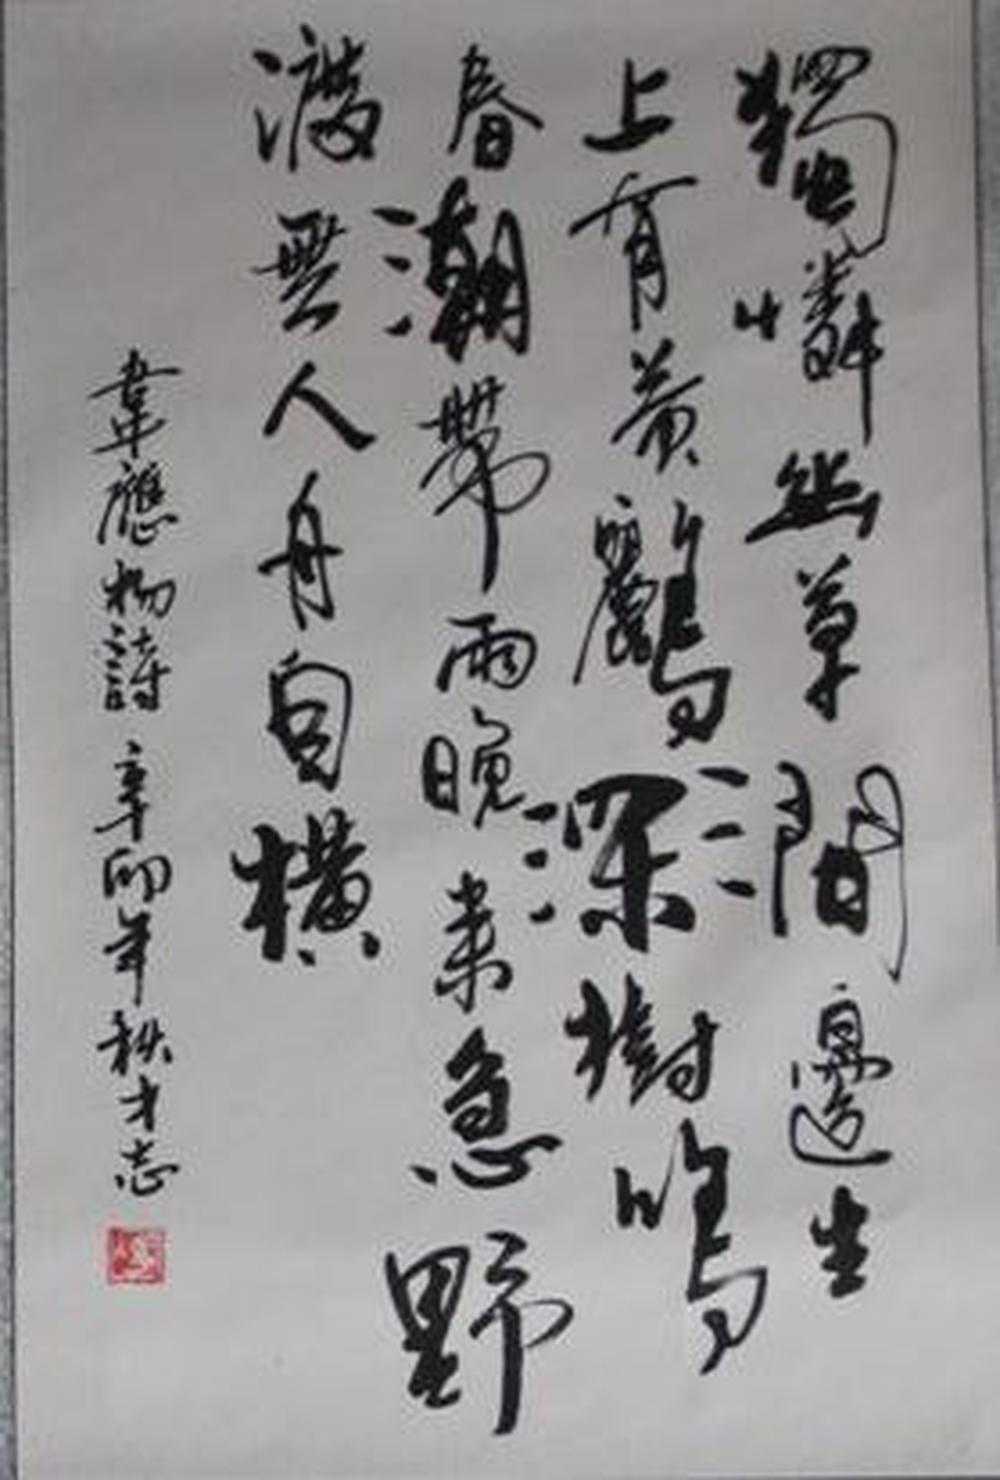 獨憐幽草澗邊生
上有黃鸝深樹鳴
春潮帶雨晚來急野
渡無人舟自橫
韋應物詩 辛卯年秋才志